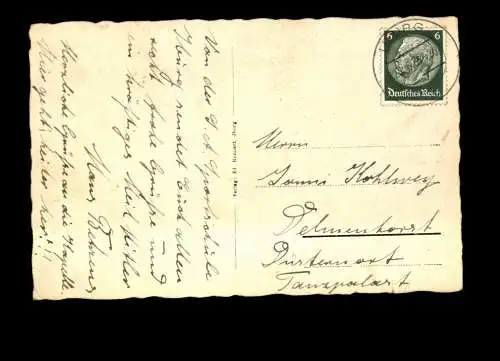 Von der S A Sportschule
Iburg sendet Euch allen
recht frohe Grüße und
ein kräftiges Heil Hitler
Hans Behrens
Herzliche Grüße an die Kapelle.
Hier geht's heiter her!!
6 6
Deutsches Reich
BURG
Herrn
Kohlwey
Delmenhorst
Düsternort
Tanzpalast